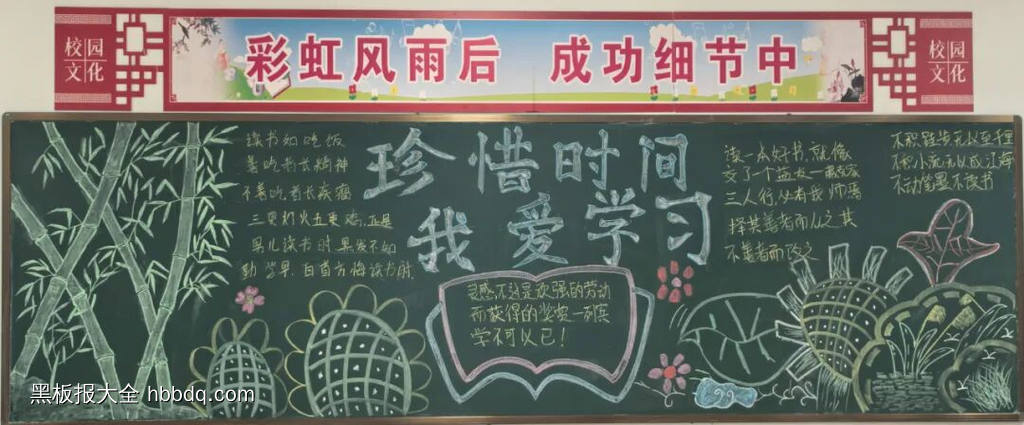 校园
文化
彩虹风雨后 成功细节中
校园
文化
珍惜时间
我爱学习
读书如吃饭
善吃者长精神
不善吃者长疾瘤
三更灯火五更鸡,正是
男儿读书时,黑发不知
勤学早,白首方悔读书时
灵感不过是顽强的劳动
而获得的奖赏一列宾
学不可以已!
读一本好书,就像
交了一个益友一
三人行,必有我师焉
择其善者而从之其
不善者而改之
不积跬步无以至千里
不积小流无以成江海
不动笔墨不读书
黑板报大全 hbbdq.com